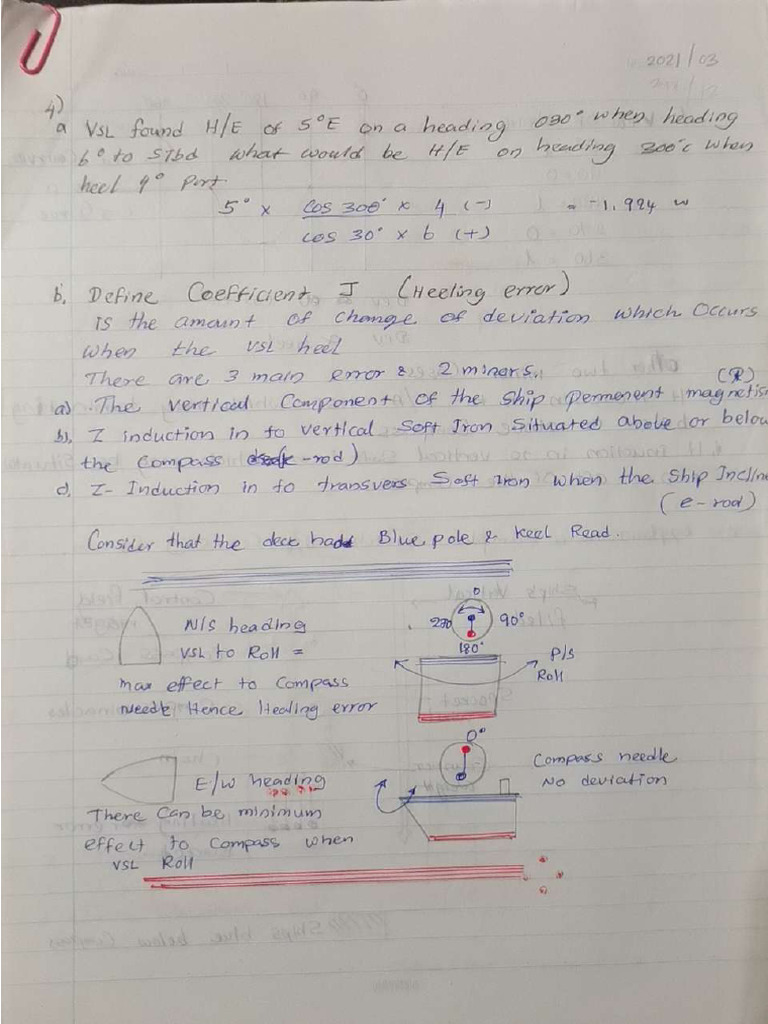 2021/03
4)
a VSL found H/E of 5°E on a heading 030° when heading
6° to Stbd what would be H/E on heading 300°c when
heel 4° Port
5° × cos 300° × 4 (-) = -1.924 w
cos 30° × 6 (+)
b, Define Coefficient J (Heeling error)
is the amount of change of deviation which occurs
when the VSL heel
There are 3 main error & 2 minors.
a) The vertical Component of the ship permenent magnetism (R)
b), Z induction in to vertical Soft Iron Situated above or below
the compass (k-rod)
c), Z- Induction in to transvers Soft Iron when the ship Incline
(e-rod)
Consider that the deck had Blue pole & keel Read.
N/S heading
VSL to Roll =
max effect to Compass
needle Hence Healing error
0
270 90°
180°
P/S
Roll
E/W heading
There can be minimum
effect to compass when
VSL Roll
0°
Compass needle
No deviation